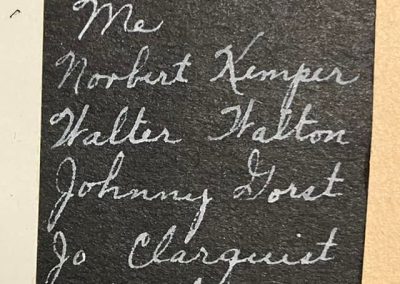 Me
Norbert Kemper
Walter Walton
Johnny Gorst
Jo Clarquist